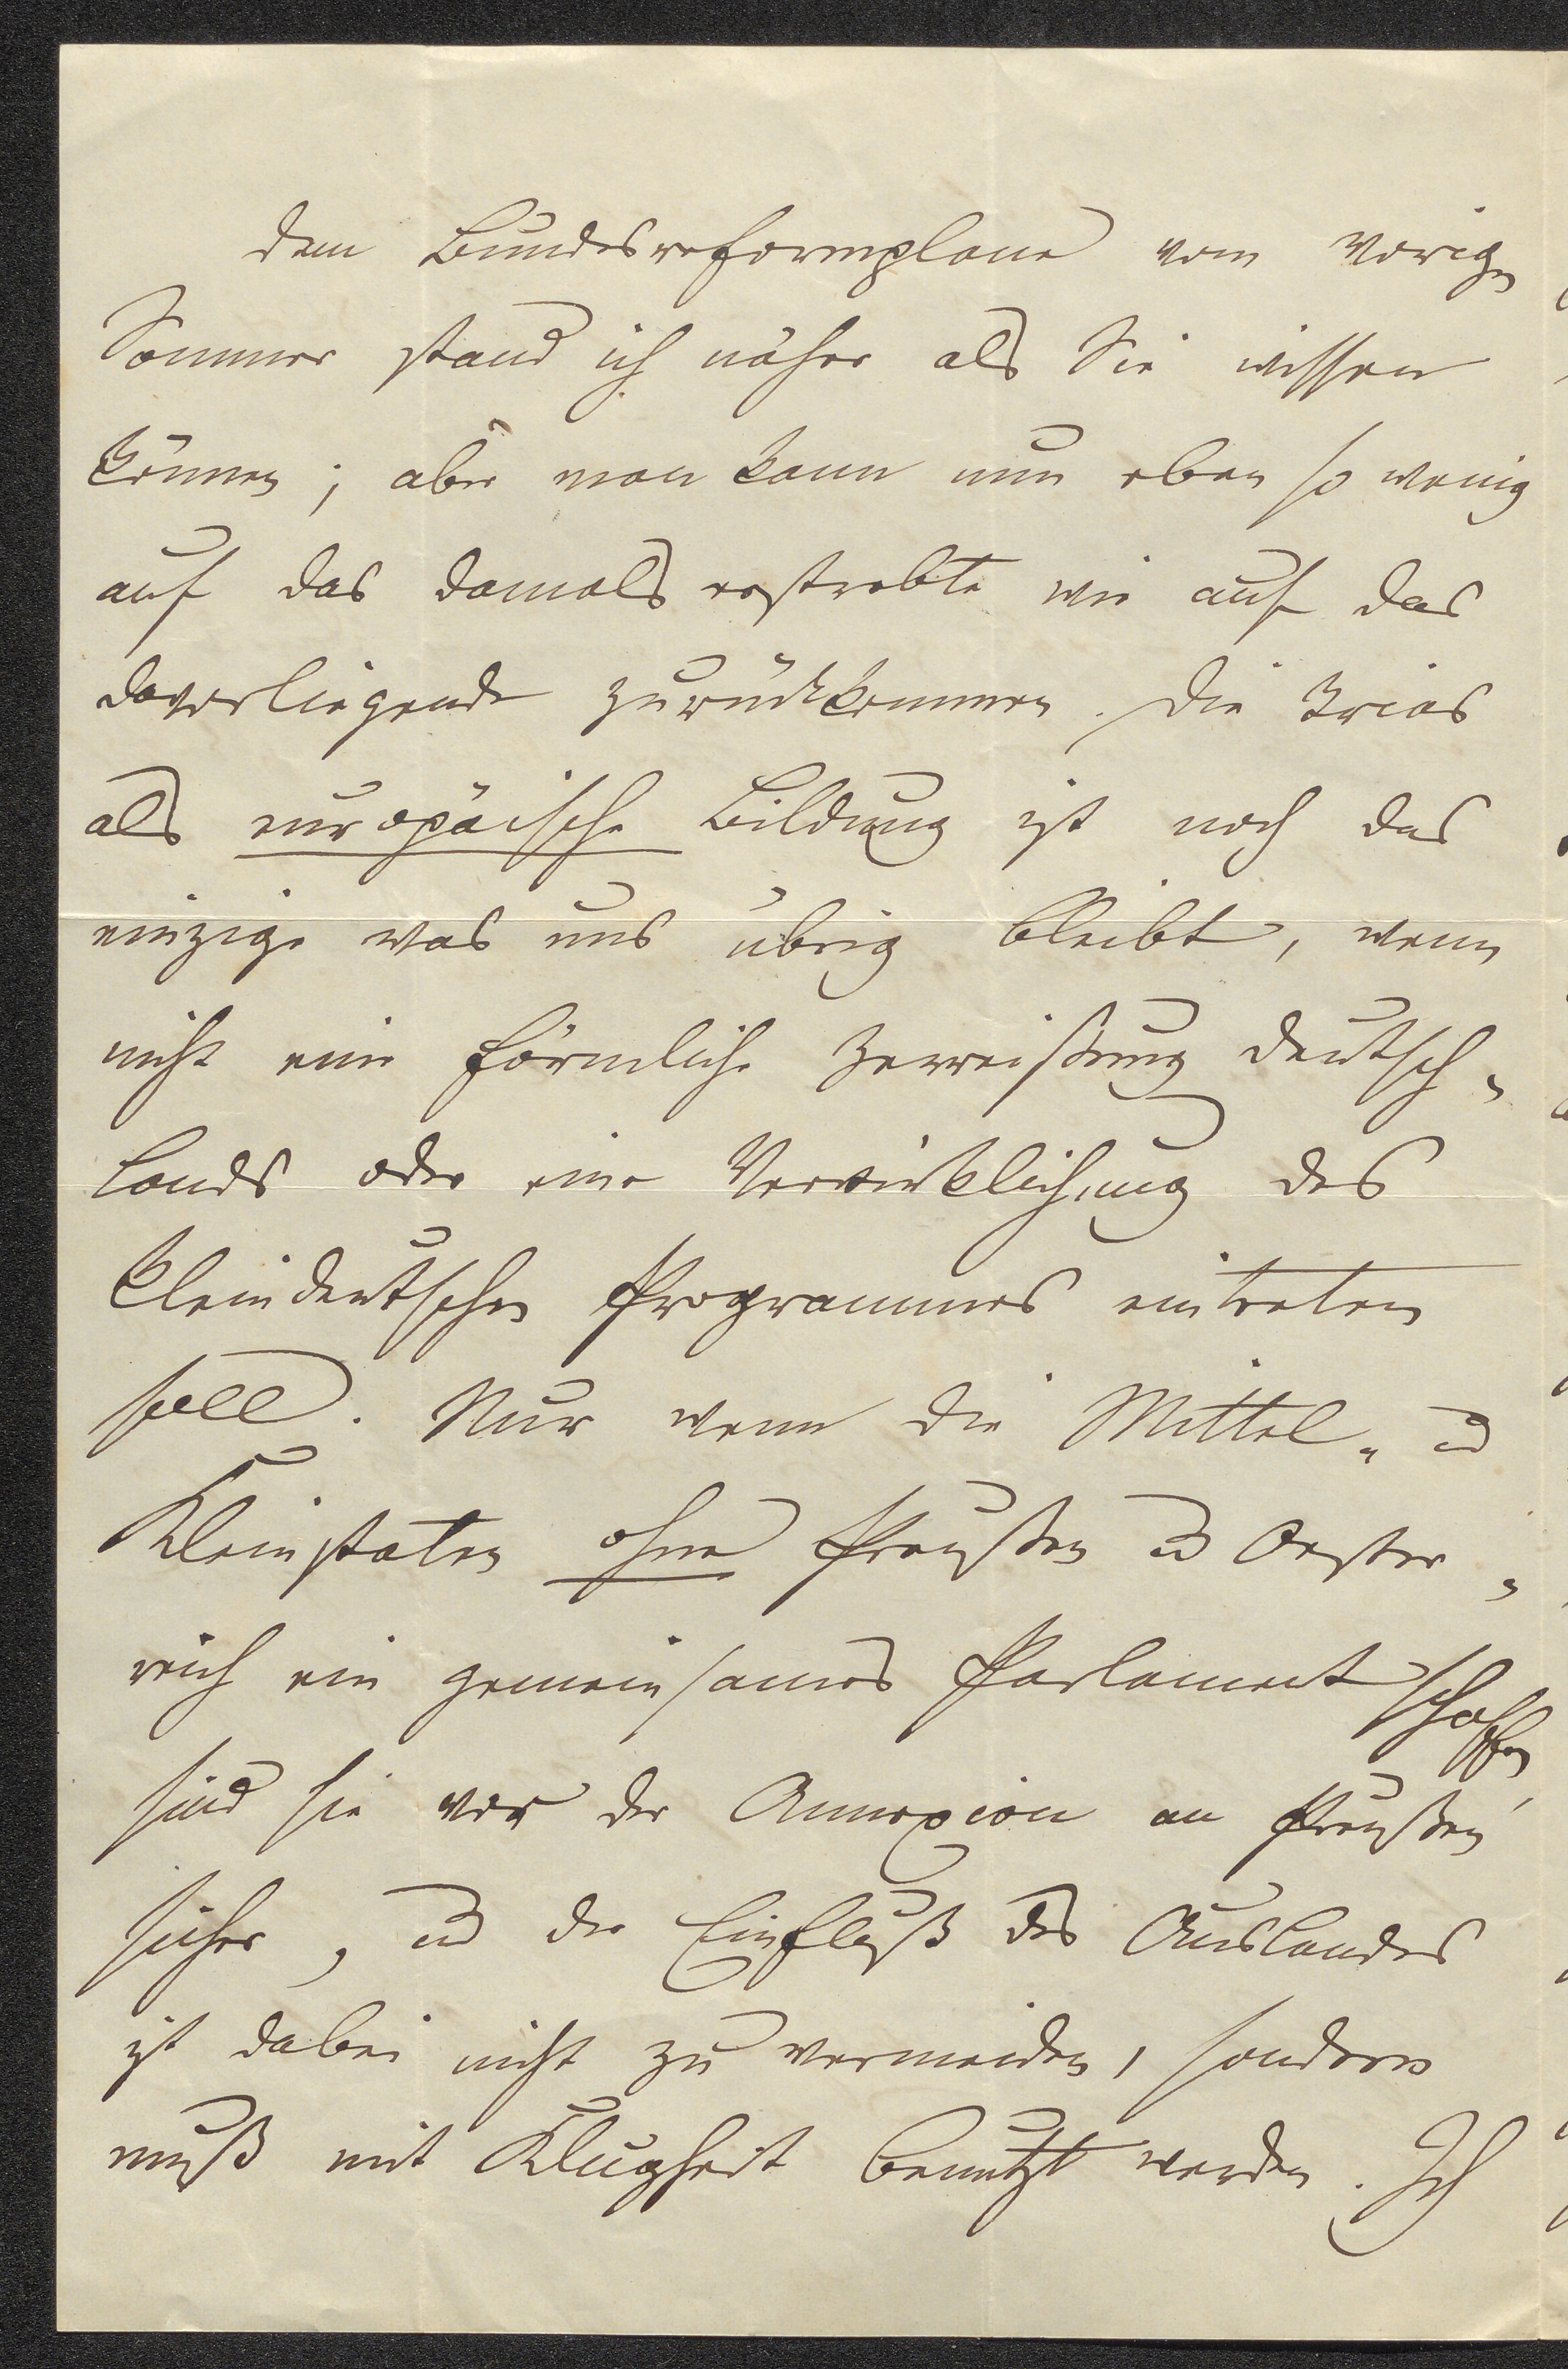 dem Bundesreformplane vom vorigen
Sommer stand ich näher als Sie wissen
können; aber man kann nun eben so wenig
auf das damals erstrebte wie auf das
davorliegende zurückkommen. Die Trias
als europäische Bildung ist noch das
einzige was uns übrig bleibt, wenn
nicht eine förmliche Zerreißung Deutsch-
lands oder eine Verwirklichung des
kleindeutschen Programmes eintreten
soll. Nur wenn die Mittel- u
Kleinstaten ohne Preußen u Oester-
reich ein gemeinsames Parlament schaffen,
sind sie vor der Annexion an Preußen
sicher, u der Einfluß des Auslandes
ist dabei nicht zu vermeiden, sondern
muß mit Klugheit benutzt werden. Ich